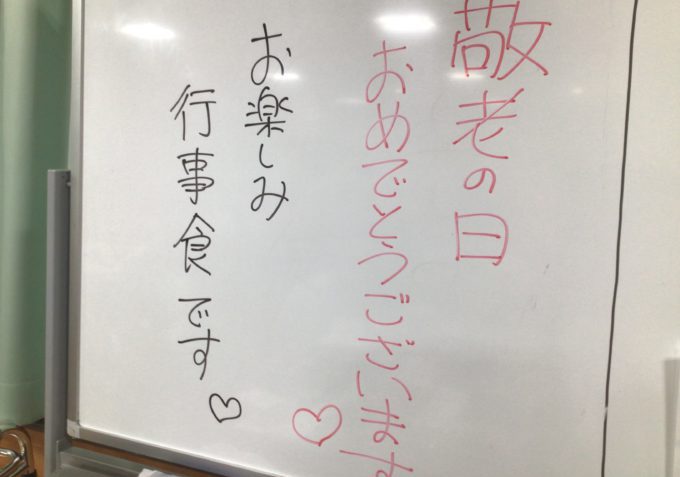 敬老の日
おめでとうございます
お楽しみ
行事食です♡
♡